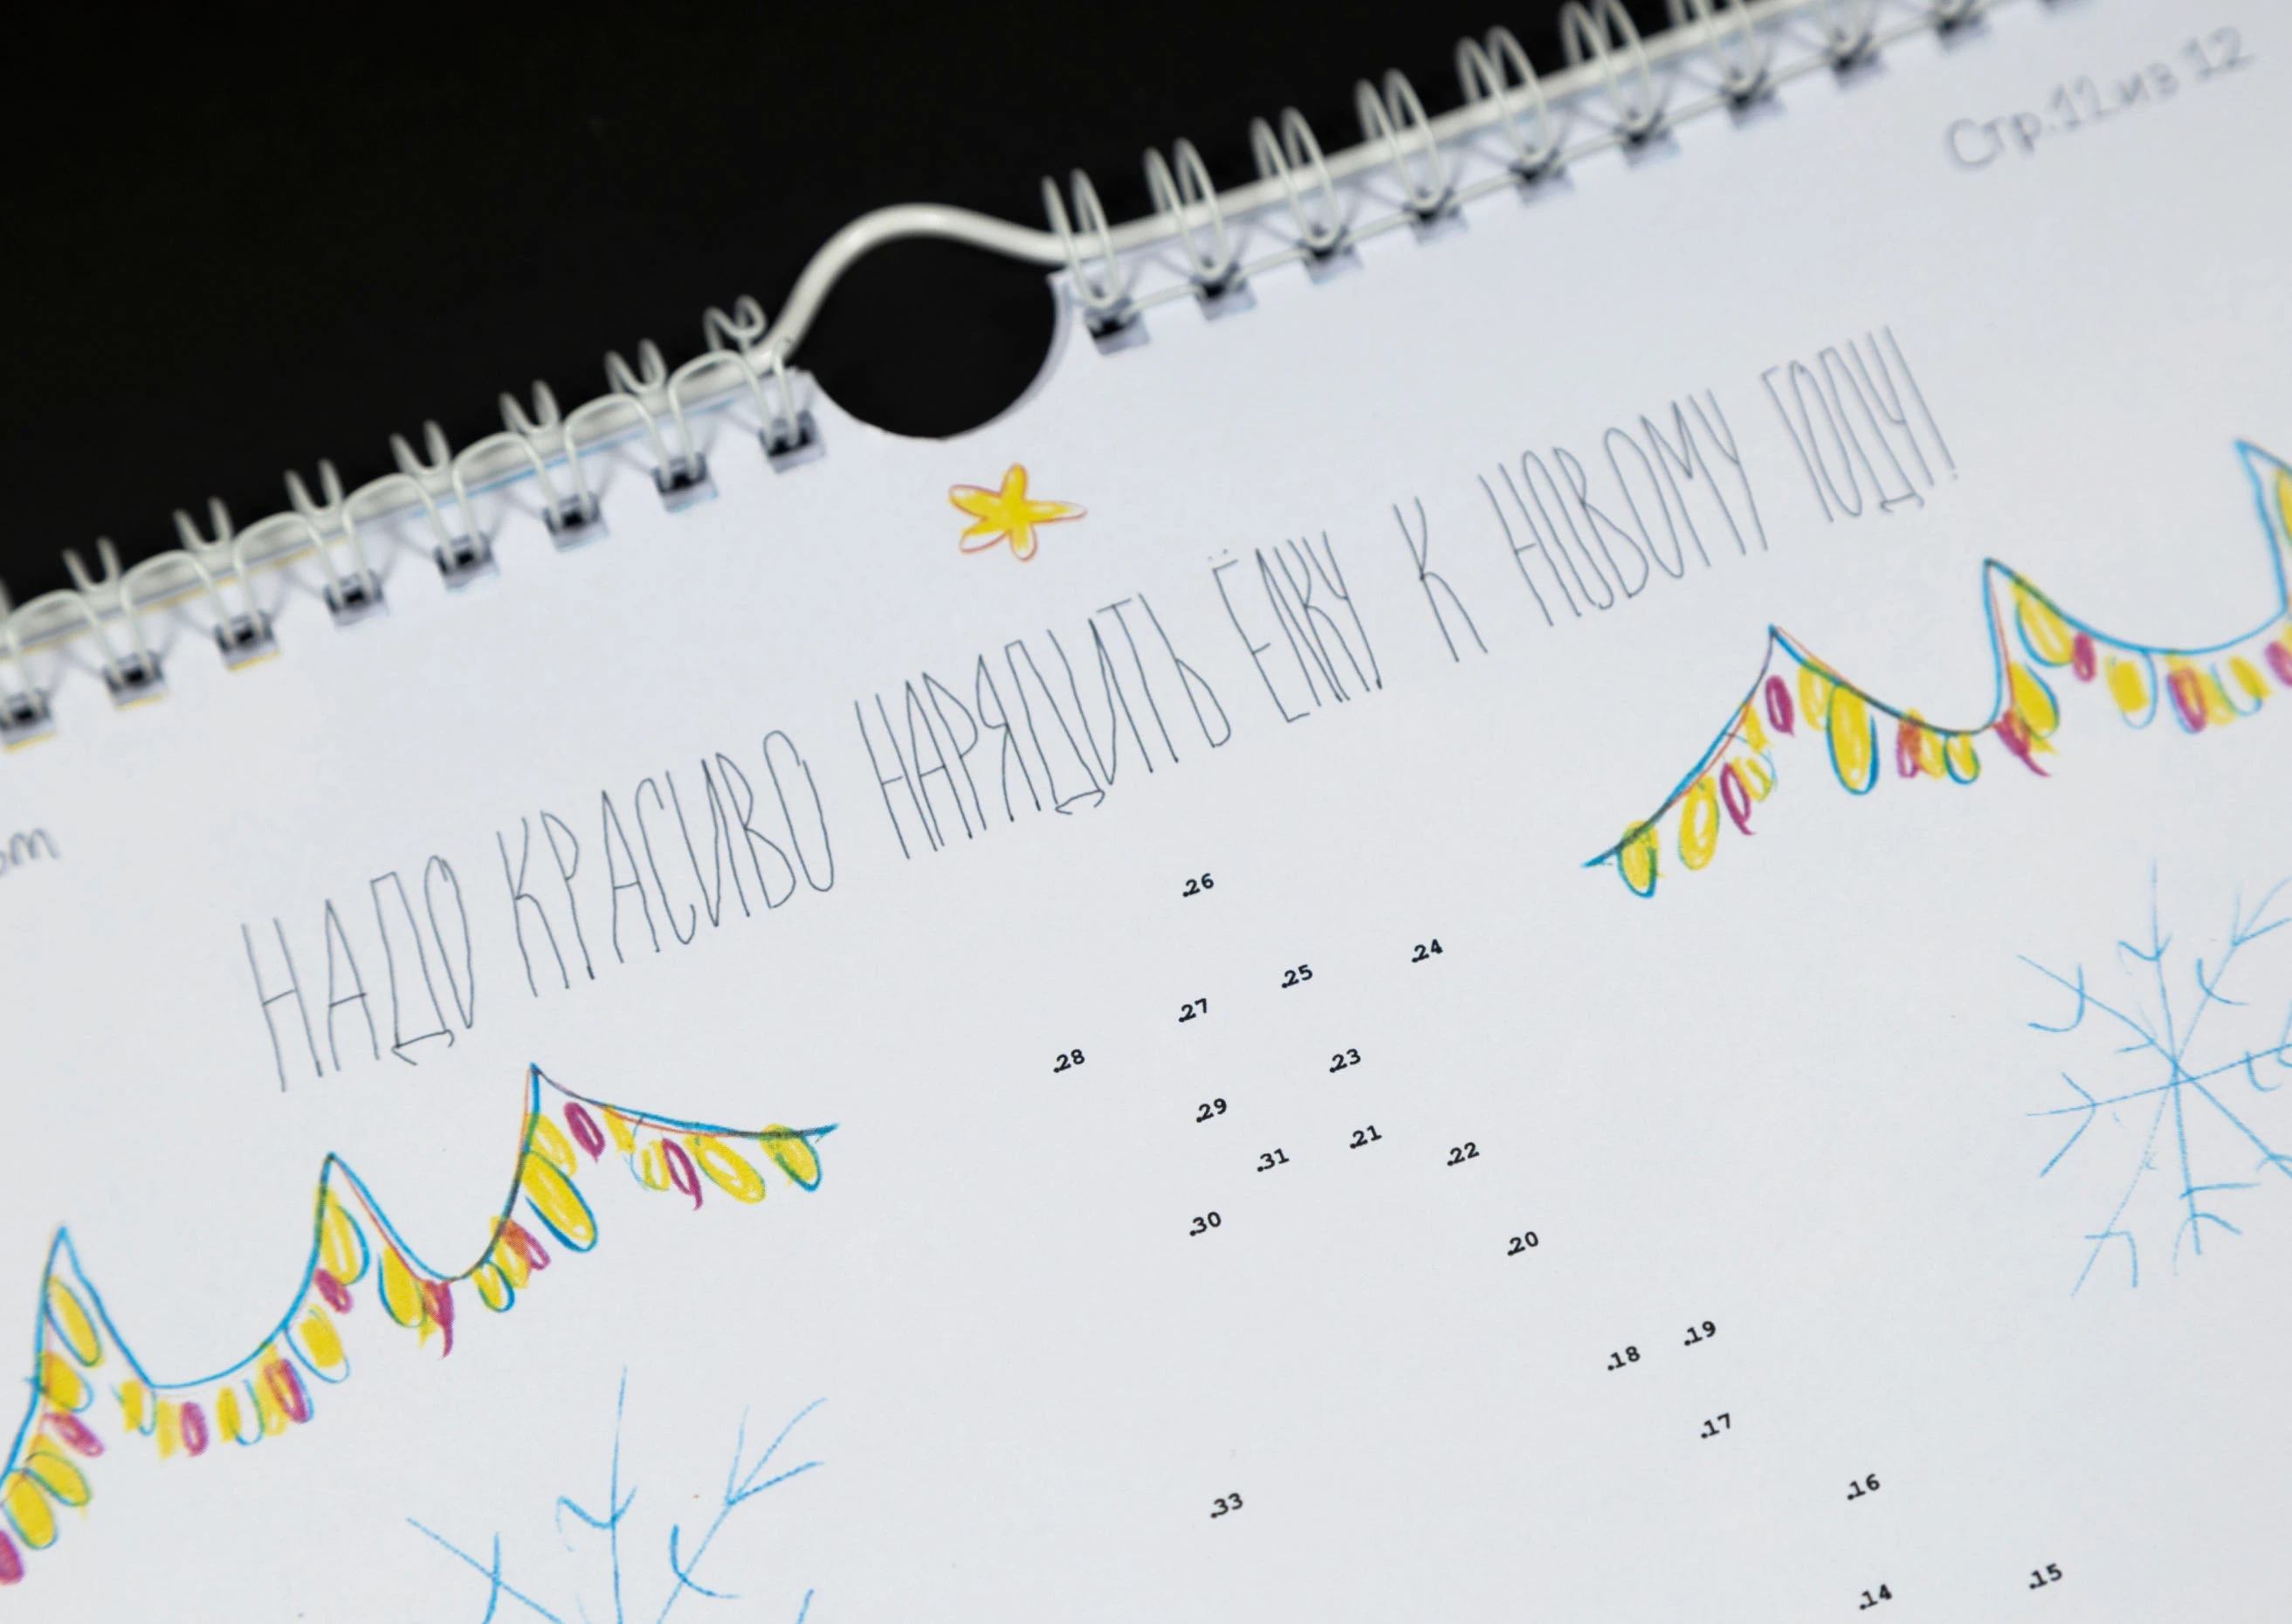 Стр.12 из 12
НАДО КРАСИВО НАРЯДИТЬ ЁЛКУ К НОВОМУ ГОДУ!
.26
.24
.25
.27
.28
.23
.29
.21
.22
.31
.30
.20
.19
.18
.17
.16
.33
.15
.14